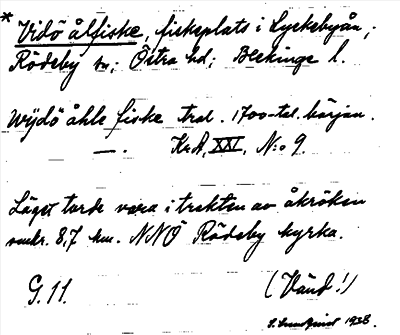 * Vidö ålfiske, fiskeplats i Lyckebyån,;
Rödeby sn; Östra hd; Blekinge l.
Wijdö åhle fiske trol. 1700-tal. början.
— . KrA, XXI, N:o 9.
Läget torde vara i trakten av åkröken
omkr. 8,7 km. NNÖ Rödeby kyrka.
G. 11. (Vänd!)
1938.